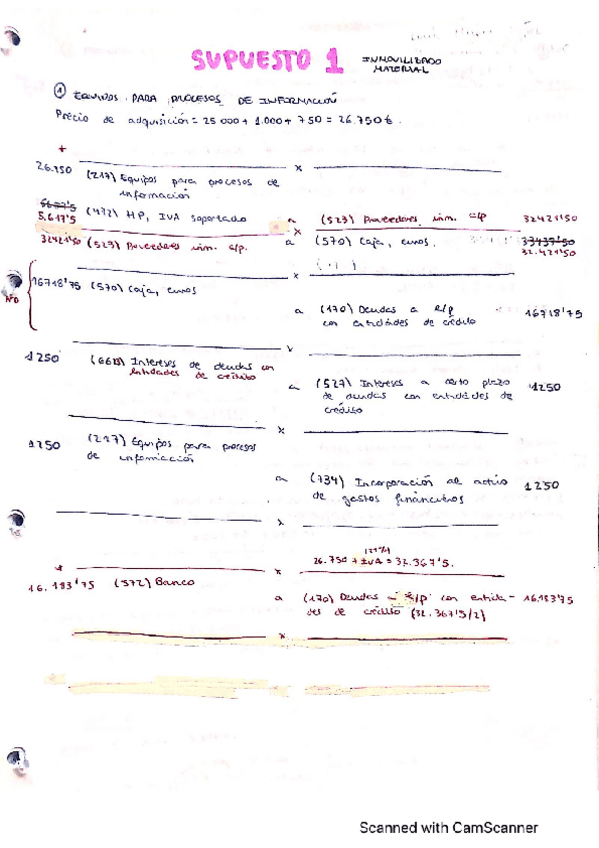 SUPUESTO 1 INMOVILIZADO
MATERIAL
① EQUIPOS PARA PROCESOS DE INFORMACIÓN
Precio de adquisición = 25 000 + 1.000 + 750 = 26.750 €.
+
26.750 (217) Equipos para procesos de x
información
5.617'5 (472) HP, IVA soportado a (523) Proveedores inm. c/p 32421'50
x
32421'50 (523) Proveedores inm. c/p. a (570) Caja, euros. 32437'50
32.421'50
x
NO
16718'75 (570) Caja, euros
a (170) Deudas a l/p 16718'75
con entidades de crédito
x
1250 (662) Intereses de deudas con
entidades de crédito
a (527) Intereses a corto plazo 1250
de deudas con entidades de
crédito
x
1250 (217) Equipos para procesos
de información
a (734) Incorporación al activo 1250
de gastos financieros
x
121%
26.750 + IVA = 32.367'5.
x
16.183'75 (572) Banco
a (170) Deudas l/p con entida- 16.183'75
des de crédito (32.367'5/2)
x
Scanned with CamScanner